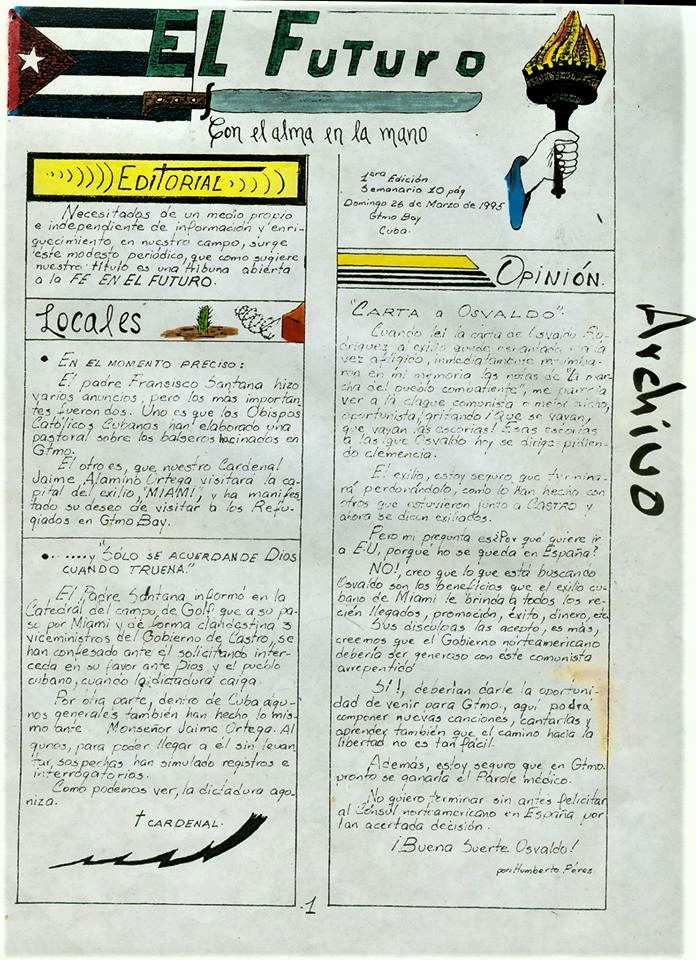 El Futuro
Con el alma en la mano
EDITORIAL
Necesitados de un medio propio
e independiente de información y enri-
quecimiento, en nuestro campo, surge
este modesto periódico, que como sugiere
nuestro título es una tribuna abierta
a la FE EN EL FUTURO.
Locales
• EN EL MOMENTO PRECISO:
El padre Fransisco Santana hizo
varios anuncios, pero los más importan
tes fueron dos. Uno es que los Obispos
Católicos Cubanos han elaborado una
pastoral sobre los balseros hacinados en
Gtmo.
El otro es, que nuestro Cardenal
Jaime Alamino Ortega visitará la ca-
pital del exilio, "MIAMI", y ha manifes
tado su deseo de visitar a los Refu-
giados en Gtmo Bay.
• .....y "SÓLO SE ACUERDAN DE DIOS
CUANDO TRUENA."
El Padre Santana informó en la
Catedral del campo de Golf, que a su pa-
so por Miami y de forma clandestina 3
viceministros del Gobierno de Castro, se
han confesado ante él solicitando inter-
ceda en su favor ante Dios, y el pueblo
cubano, cuando la dictadura caiga.
Por otra parte, dentro de Cuba algu-
nos generales también han hecho lo mis-
mo ante Monseñor Jaime Ortega. Al
gunos, para poder llegar a él sin levan
tar, sospechas han simulado registros e
interrogatorios.
Como podemos ver, la dictadura ago-
niza.
† CARDENAL.
1era Edición
Semanario 10 pág
Domingo 26 de Marzo de 1995
Gtmo Bay
Cuba.
OPINIÓN.
"CARTA a OSVALDO":
Cuando leí la carta de Osvaldo Ro-
dríguez al exilio quedé
vez afligido, inmediatamente retumba-
ron en mi memoria las notas de "La mar-
cha del pueblo combatiente", me parecía
ver a la claque comunista o mejor dicho,
oportunista, gritando ¡Que se vayan,
que vayan las escorias! Esas escorias
a las que Osvaldo hoy se dirige pidien-
do clemencia.
El exilio, estoy seguro que termina-
rá perdonándolo, como lo han hecho con
otros que estuvieron junto a CASTRO y
ahora se dicen exiliados.
Pero mi pregunta es ¿Por qué quiere ir
a E.U, porqué no se queda en España?
NO!, creo que lo que está buscando
Osvaldo son los beneficios que el exilio cu-
bano de Miami le brinda a todos los re-
cién llegados, promoción, éxito, dinero, etc.
Sus disculpas las acepto, es más,
creemos que el Gobierno norteamericano
debería ser generoso con éste comunista
arrepentido
SÍ!, deberían darle la oportuni-
dad de venir para Gtmo, aquí podrá
componer nuevas canciones, cantarlas y
aprender también que el camino hacia la
libertad no es tan fácil.
Además, estoy seguro que en Gtmo.
pronto se ganaría el Parole médico.
No quiero terminar sin antes felicitar
al Cónsul norteamericano en España por
tan acertada decisión.
¡Buena Suerte Osvaldo!
por: Humberto Pérez
1
Archivo